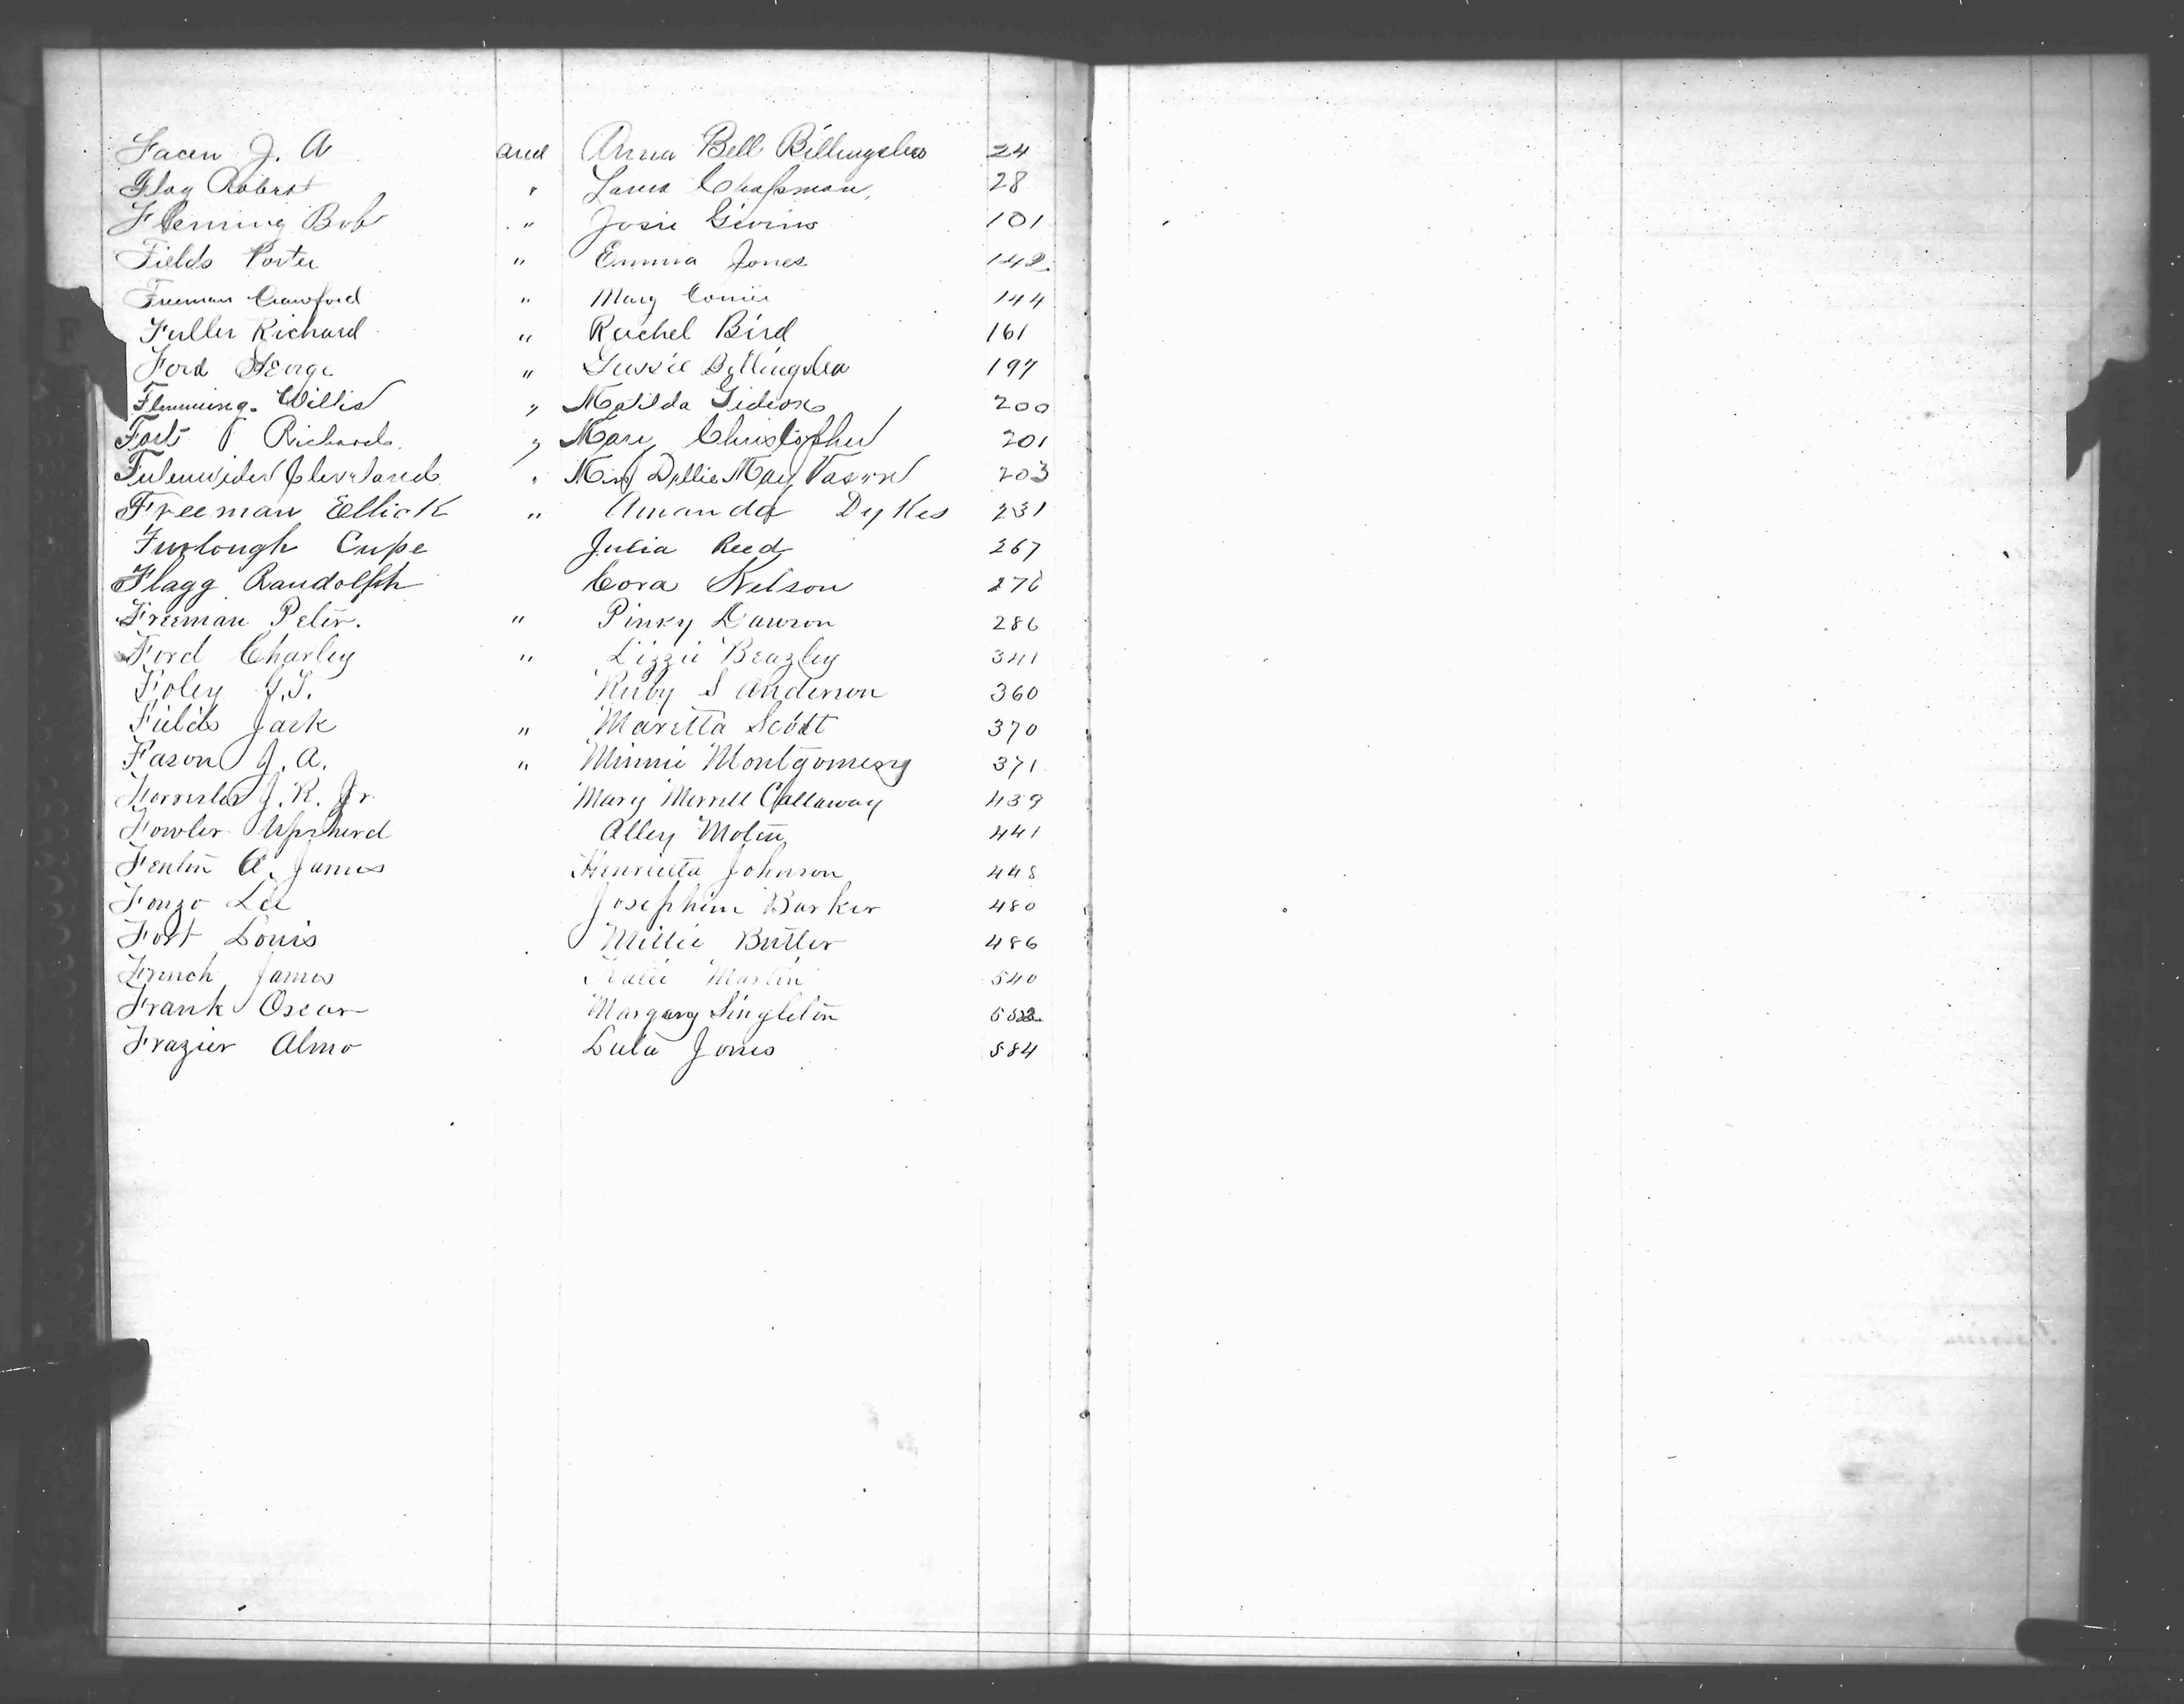 F
Facen J. A and Anna Bell Billingslea 24
Flag Robert " Laura Chapman, 28
Fleming Bob " Josie Givins 101
Fields Porter " Emma Jones 142
Freeman Crawford " Mary 144
Fuller Richard " Rachel Bird 161
Ford George " Gussie Billingslea 197
Flemming. Willis " Matilda Gideon 200
Fort Richard " Mary Christopher 201
Fulenwider Cleveland " Miss Dollie May 203
Freeman Ellick " Amanda Dykes 231
Furlough Cupe Julia Reed 267
Flagg Randolph Cora Nelson 276
Freeman Peter. " Pinky Dawson 286
Ford Charley " Lizzie Beazley 341
Foley J.T. Ruby S Anderson 360
Fields Jack " Maretta Scott 370
Fason J. A. " Minnie Montgomery 371
Forrester J. R. Jr Mary Merrell Callaway 439
Fowler Upsherd Alley Moten 441
Fentin A. James Henrietta Johnson 448
Fonzo Lee Josephine Barker 480
Fort Louis Millie Butler 486
French James Katie Martin 540
Frank Oscar Margary Singleton
Frazier Almo Lula Jones 584